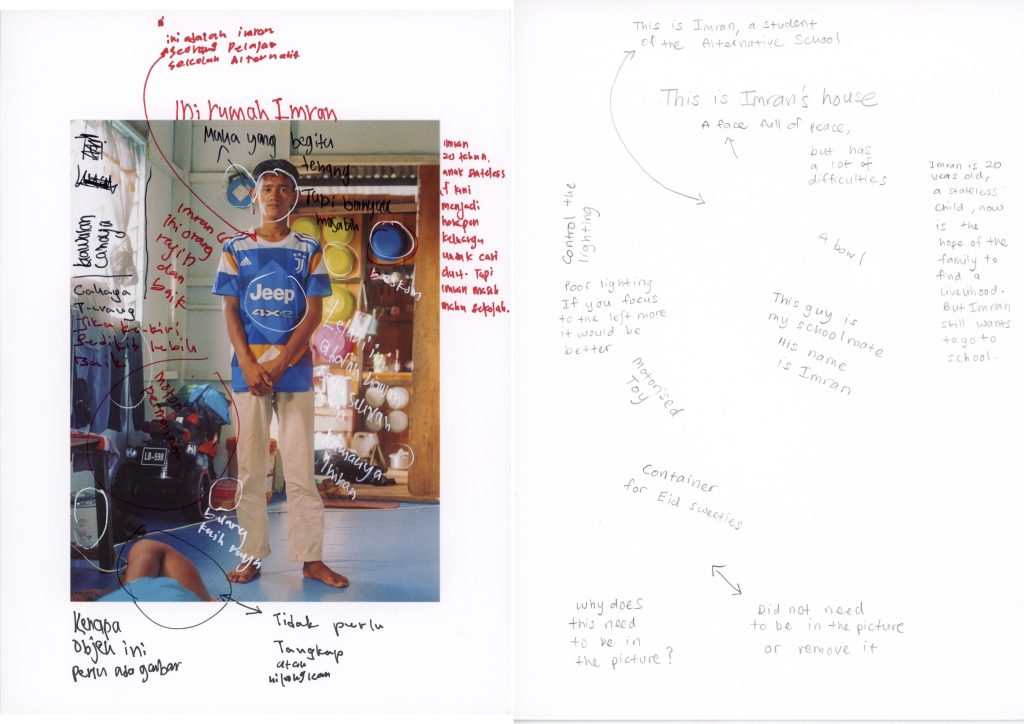 ini adalah imran
seorang Pelajar
sekolah Alternatif
Ini rumah Imran
Muka yang begitu
tenang
Tapi banyak
masalah
imran
20 tahun,
anak stateless
kini
menjadi
harapan
keluarga
untuk cari
duit. Tapi
imran masih
mahu sekolah.
kawalan
Cahaya
Imran
ini orang
rajin
dan
baik
Cahaya
Terang
Jika ke kiri
sedikit lebih
baik
beskom
Jeep
4xe
Lelaki ini
adalah kawan
Namanya
motor
permainan
LB-598
balang
kuih raya
Kenapa
objek ini
perlu ada gambar
Tidak perlu
Tangkap
atau
hilangkan
This is Imran, a student
of the Alternative School
This is Imran's house
A face full of peace,
but has
a lot of
difficulties
Imran is 20
years old,
a stateless
child, now
is the
hope of the
family to
find a
livelihood.
But Imran
still wants
to go to
school.
Control the
lighting
A bowl
Poor lighting
If you focus
to the left more
it would be
better
This guy is
my schoolmate
His name
is Imran
motorised
Toy
Container
for Eid sweeties
why does
this need
to be in
the picture?
Did not need
to be in the picture
or remove it